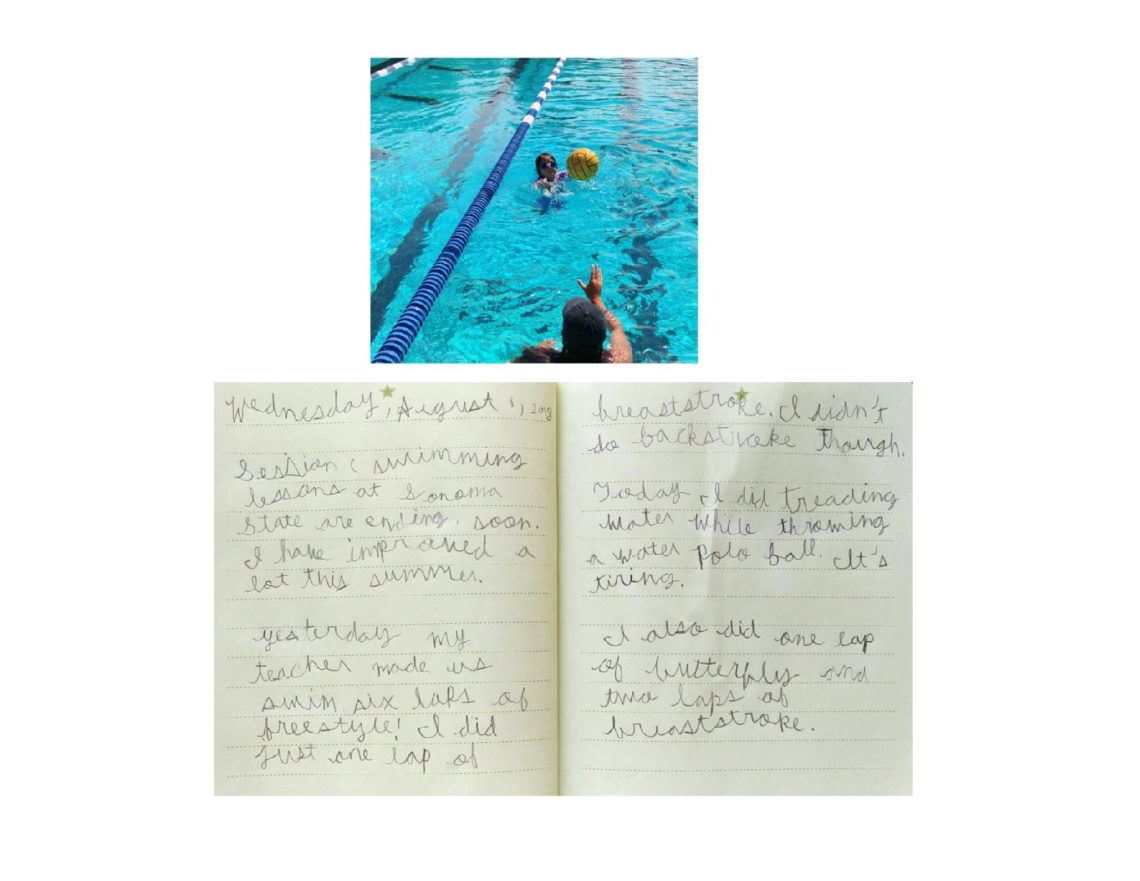 Wednesday, August 8, 2018
Session C swimming
lessons at Sonoma
State are ending soon.
I have improved a
lot this summer.
yesterday my
teacher made us
swim six laps of
freestyle! I did
just one lap of
breaststroke. I didn't
do backstroke though.
Today I did treading
water while throwing
a water polo ball. It's
tiring.
I also did one lap
of butterfly and
two laps of
breaststroke.